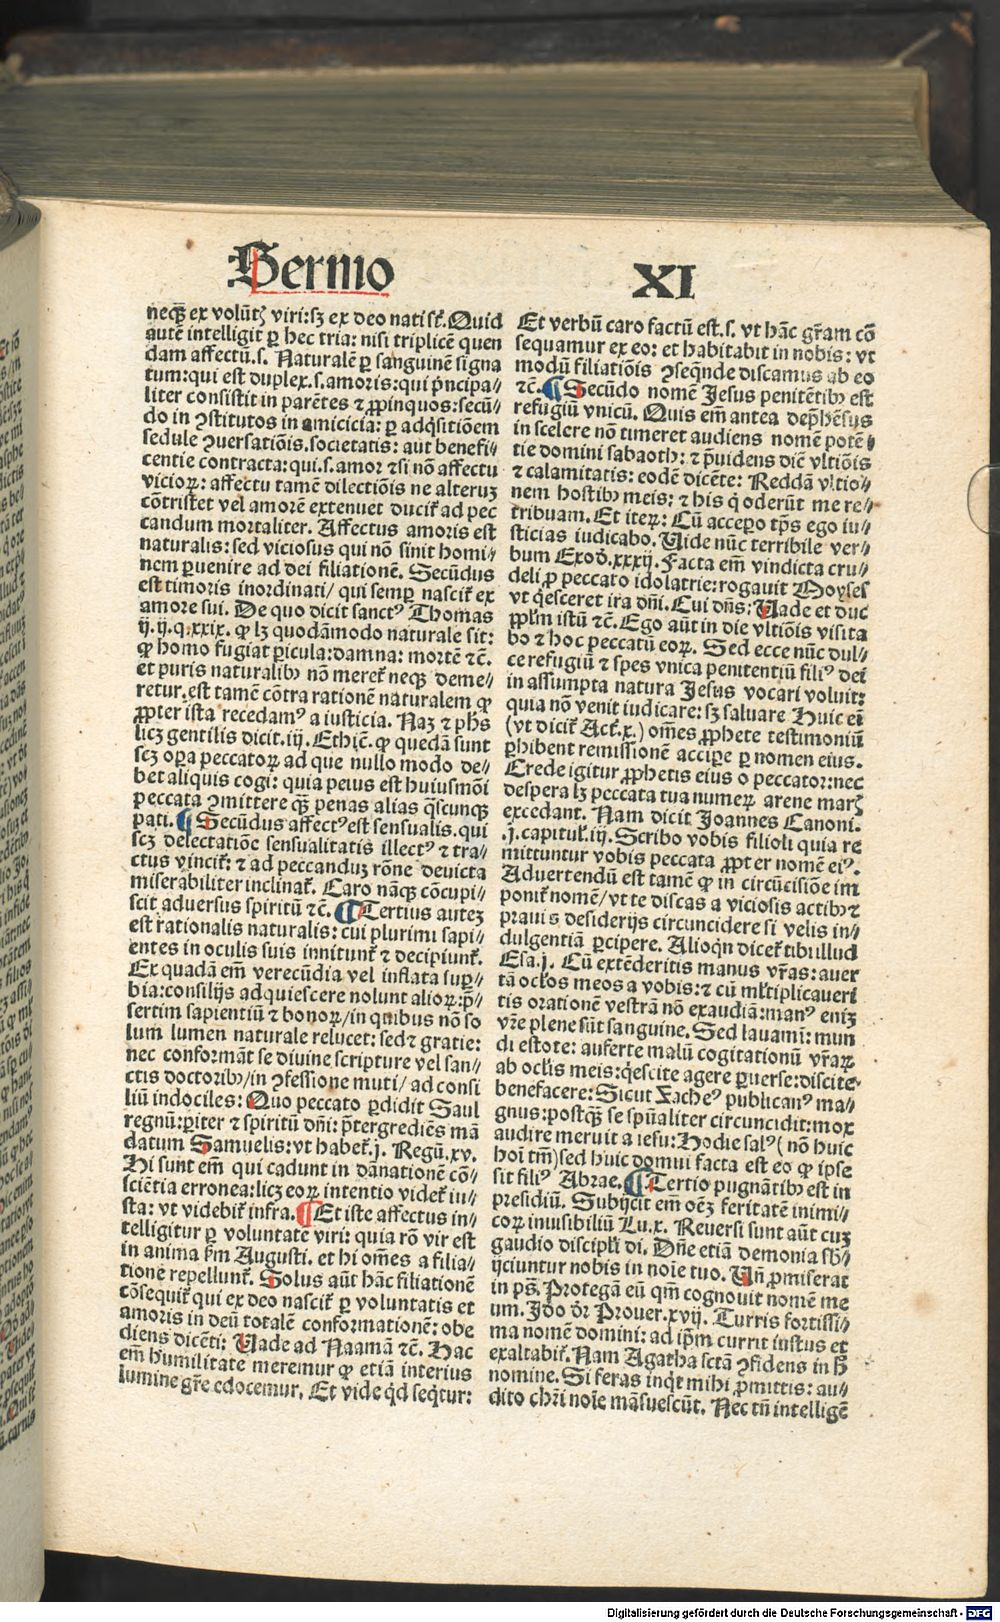 Sermo XI
neqꝫ ex volūtꝫ viri: sꝫ ex deo nati st̄. Quid
autē intelligit ꝑ hec tria: nisi triplicē quen
dam affectū. s. Naturalē ꝑ sanguinē signa
tum: qui est duplex. s. amoris: qui pͥncipa-
liter consistit in parētes ⁊ ꝓpinquos: secū//
do in ꝯstitutos in amicicia: ꝑ adqͥsitiōem
sedule ꝯuersatiōis. societatis: aut benefi//
centie contracta: qui. s. amor ⁊ si nō affectu
vicioꝝ: affectu tamē dilectiōis ne alteruꝫ
cōtristet vel amorē extenuet ducit᷑ ad pec
candum mortaliter. Affectus amoris est
naturalis: sed viciosus qui nō sinit homi//
nem ꝑuenire ad dei filiationē. Secūdus
est timoris inordinati/ qui semꝑ nascit᷑ ex
amore sui. De quo dicit sanctꝰ Thomas
ij. ij. q. xxix. ꝙ lꝫ quodāmodo naturale sit:
ꝙ homo fugiat ꝑicula: damna: mortē ⁊c̄.
et puris naturalibꝰ nō meret᷑ neqꝫ deme//
retur. est tamē cōtra rationē naturalem ꝙ
ꝓpter ista recedamꝰ a iusticia. Naꝫ ⁊ ph̄s
licꝫ gentilis dicit. iij. Ethic̄. ꝙ quedā sunt
scꝫ oꝑa peccatoꝝ ad que nullo modo de//
bet aliquis cogi: quia peius est huiusmōi
peccata ꝯmittere qͣꝫ penas alias qͣscunqꝫ
pati. ¶ Secūdus affectꝰ est sensualis. qui
scꝫ delectatiōe sensualitatis illectꝰ ⁊ tra//
ctus vincit᷑: ⁊ ad peccanduꝫ rōne deuicta
miserabiliter inclinat᷑. Caro nāqꝫ cōcupi//
scit aduersus spiritū ⁊c̄. ¶ Tertius auteꝫ
est rationalis naturalis: cui plurimi sapi//
entes in oculis suis innitunt᷑ ⁊ decipiunt᷑.
Ex quadā em̄ verecūdia vel inflata suꝑ//
bia: consilijs adquiescere nolunt alioꝝ: p̄//
sertim sapientiū ⁊ bonoꝝ/ in quibus nō so
lum lumen naturale relucet: sed ⁊ gratie:
nec conformāt se diuine scripture vel san//
ctis doctoribꝰ/ in ꝯfessione muti/ ad consi
liū indociles: Quo peccato ꝑdidit Saul
regnū: ꝑiter ⁊ spiritū dn̄i: p̄tergrediēs mā
datum Samuelis: vt habet᷑. j. Regū. xv.
Hi sunt em̄ qui cadunt in dānationē cō//
sciētia erronea: licꝫ eoꝝ intentio videt᷑ iu//
sta: vt videbit᷑ infra. ¶ Et iste affectus in//
telligitur ꝑ voluntate viri: quia rō vir est
in anima s̄m Augusti. et hi om̄es a filia//
tione repellunt᷑. Solus aūt hāc filiationē
cōsequit᷑ qui ex deo nascit᷑ ꝑ voluntatis et
amoris in deū totalē conformationē: obe
diens dicēti: Uade ad Naamā ⁊c̄. Hac
em̄ humilitate meremur ꝙ etiā interius
lumine gr̄e edocemur. Et vide qd̄ seqͥtur:
Et verbū caro factū est. s. vt hāc gr̄am cō
sequamur ex eo: et habitabit in nobis: vt
modū filiatiōis ꝯseqͣnde discamus ab eo
⁊c̄. ¶ Secūdo nomē Jesus penitētibꝰ est
refugiū vnicū. Quis em̄ antea dep̄hēsus
in scelere nō timeret audiens nomē potē//
tie domini sabaoth: ⁊ p̄uidens diē vltiōis
⁊ calamitatis: eodē dicēte: Reddā vltio//
nem hostibꝰ meis: ⁊ his qͥ oderūt me re//
tribuam. Et iteꝝ: Cū accepo tp̄s ego iu//
sticias iudicabo. Uide nūc terribile ver//
bum Exod̄. xxxij. Facta em̄ vindicta cru//
deli ꝓ peccato idolatrie: rogauit Moyses
vt qͥesceret ira dn̄i. Cui dn̄s: Uade et duc
pp̄lm istū ⁊c̄. Ego aūt in die vltiōis visita
bo ⁊ hoc peccatū eoꝝ. Sed ecce nūc dul//
ce refugiū ⁊ spes vnica penitentiū filiꝰ dei
in assumpta natura Jesus vocari voluit:
quia nō venit iudicare: sꝫ saluare Huic ei
(vt dicit᷑ Act᷑. x.) om̄es ꝓphete testimoniū
ꝑhibent remissionē acciꝑe ꝑ nomen eius.
Crede igitur ꝓphetis eius o peccator: nec
despera lꝫ peccata tua numeꝝ arene marꝫ
excedant. Nam dicit Joannes Canoni.
.j. capitul᷑. iij. Scribo vobis filioli quia re
mittuntur vobis peccata ꝓpter nomē eiꝰ.
Aduertendū est tamē ꝙ in circūcisiōe im
ponit᷑ nomē/ vt te discas a viciosis actibꝰ ⁊
prauis desiderijs circuncidere si velis in//
dulgentiā ꝑcipere. Alioqͥn dicet᷑ tibi illud
Esa. j. Cū extēderitis manus vr̄as: auer
tā ocl̓os meos a vobis: ⁊ cū ml̓tiplicaueri
tis orationē vestrā nō exaudiā: manꝰ eniꝫ
vr̄e plene sūt sanguine. Sed lauami: mun
di estote: auferte malū cogitationū vr̄aꝝ
ab ocl̓is meis: qͥescite agere ꝑuerse: discite
benefacere: Sicut Zacheꝰ publicanꝰ ma//
gnus: postqͣꝫ se sp̄ualiter circuncidit: mox
audire meruit a iesu: Hodie salꝰ (nō huic
hoī tm̄) sed huic domui facta est eo ꝙ ipse
sit filiꝰ Abrae. ¶ Tertio pugnātibꝰ est in
presidiū. Subijcit em̄ oēꝫ feritatē inimi//
coꝝ inuisibiliū Lu. x. Reuersi sunt aūt cuꝫ
gaudio discipl̓i di. Dn̄e etiā demonia sb̄//
ijciuntur nobis in noīe tuo. Un̄ ꝓmiserat
in ps̄. Protegā eū qm̄ cognouit nomē me
um. Jdo dr̄ Prouer. xvij. Turris fortissi//
ma nomē domini: ad ip̄m currit iustus et
exaltabit᷑. Nam Agatha sctā ꝯfidens in h̄
nomine. Si feras inqͥt mihi ꝓmittis: au//
dito chr̄i noīe māsuescūt. Nec tn̄ intelligē
Digitalisierung gefördert durch die Deutsche Forschungsgemeinschaft - DFG